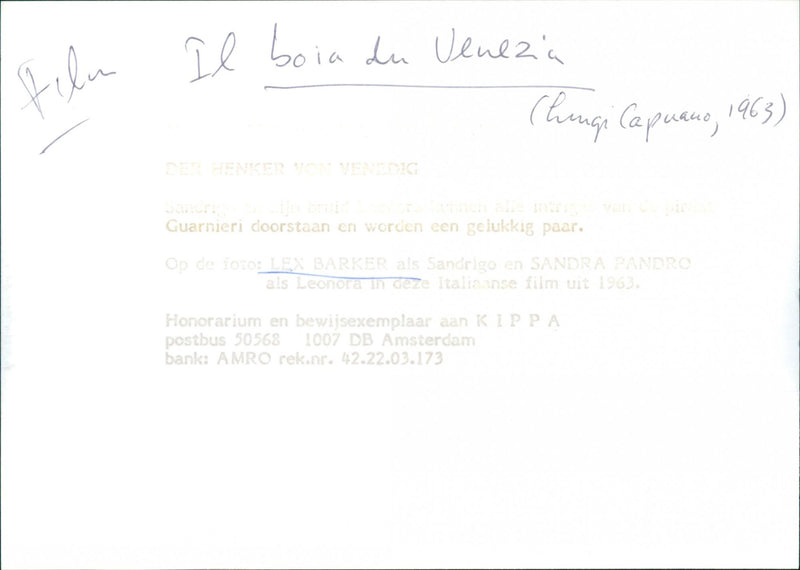 Film Il boia du Venezia
(Luigi Capuano, 1963)
DER HENKER VON VENEDIG
Sandrigo en zijn bruid Leonora kunnen alle intriges van de piraat
Guarnieri doorstaan en worden een gelukkig paar.
Op de foto: LEX BARKER als Sandrigo en SANDRA PANDRO
als Leonora in deze Italiaanse film uit 1963.
Honorarium en bewijsexemplaar aan K I P P A
postbus 50568 1007 DB Amsterdam
bank: AMRO rek.nr. 42.22.03.173